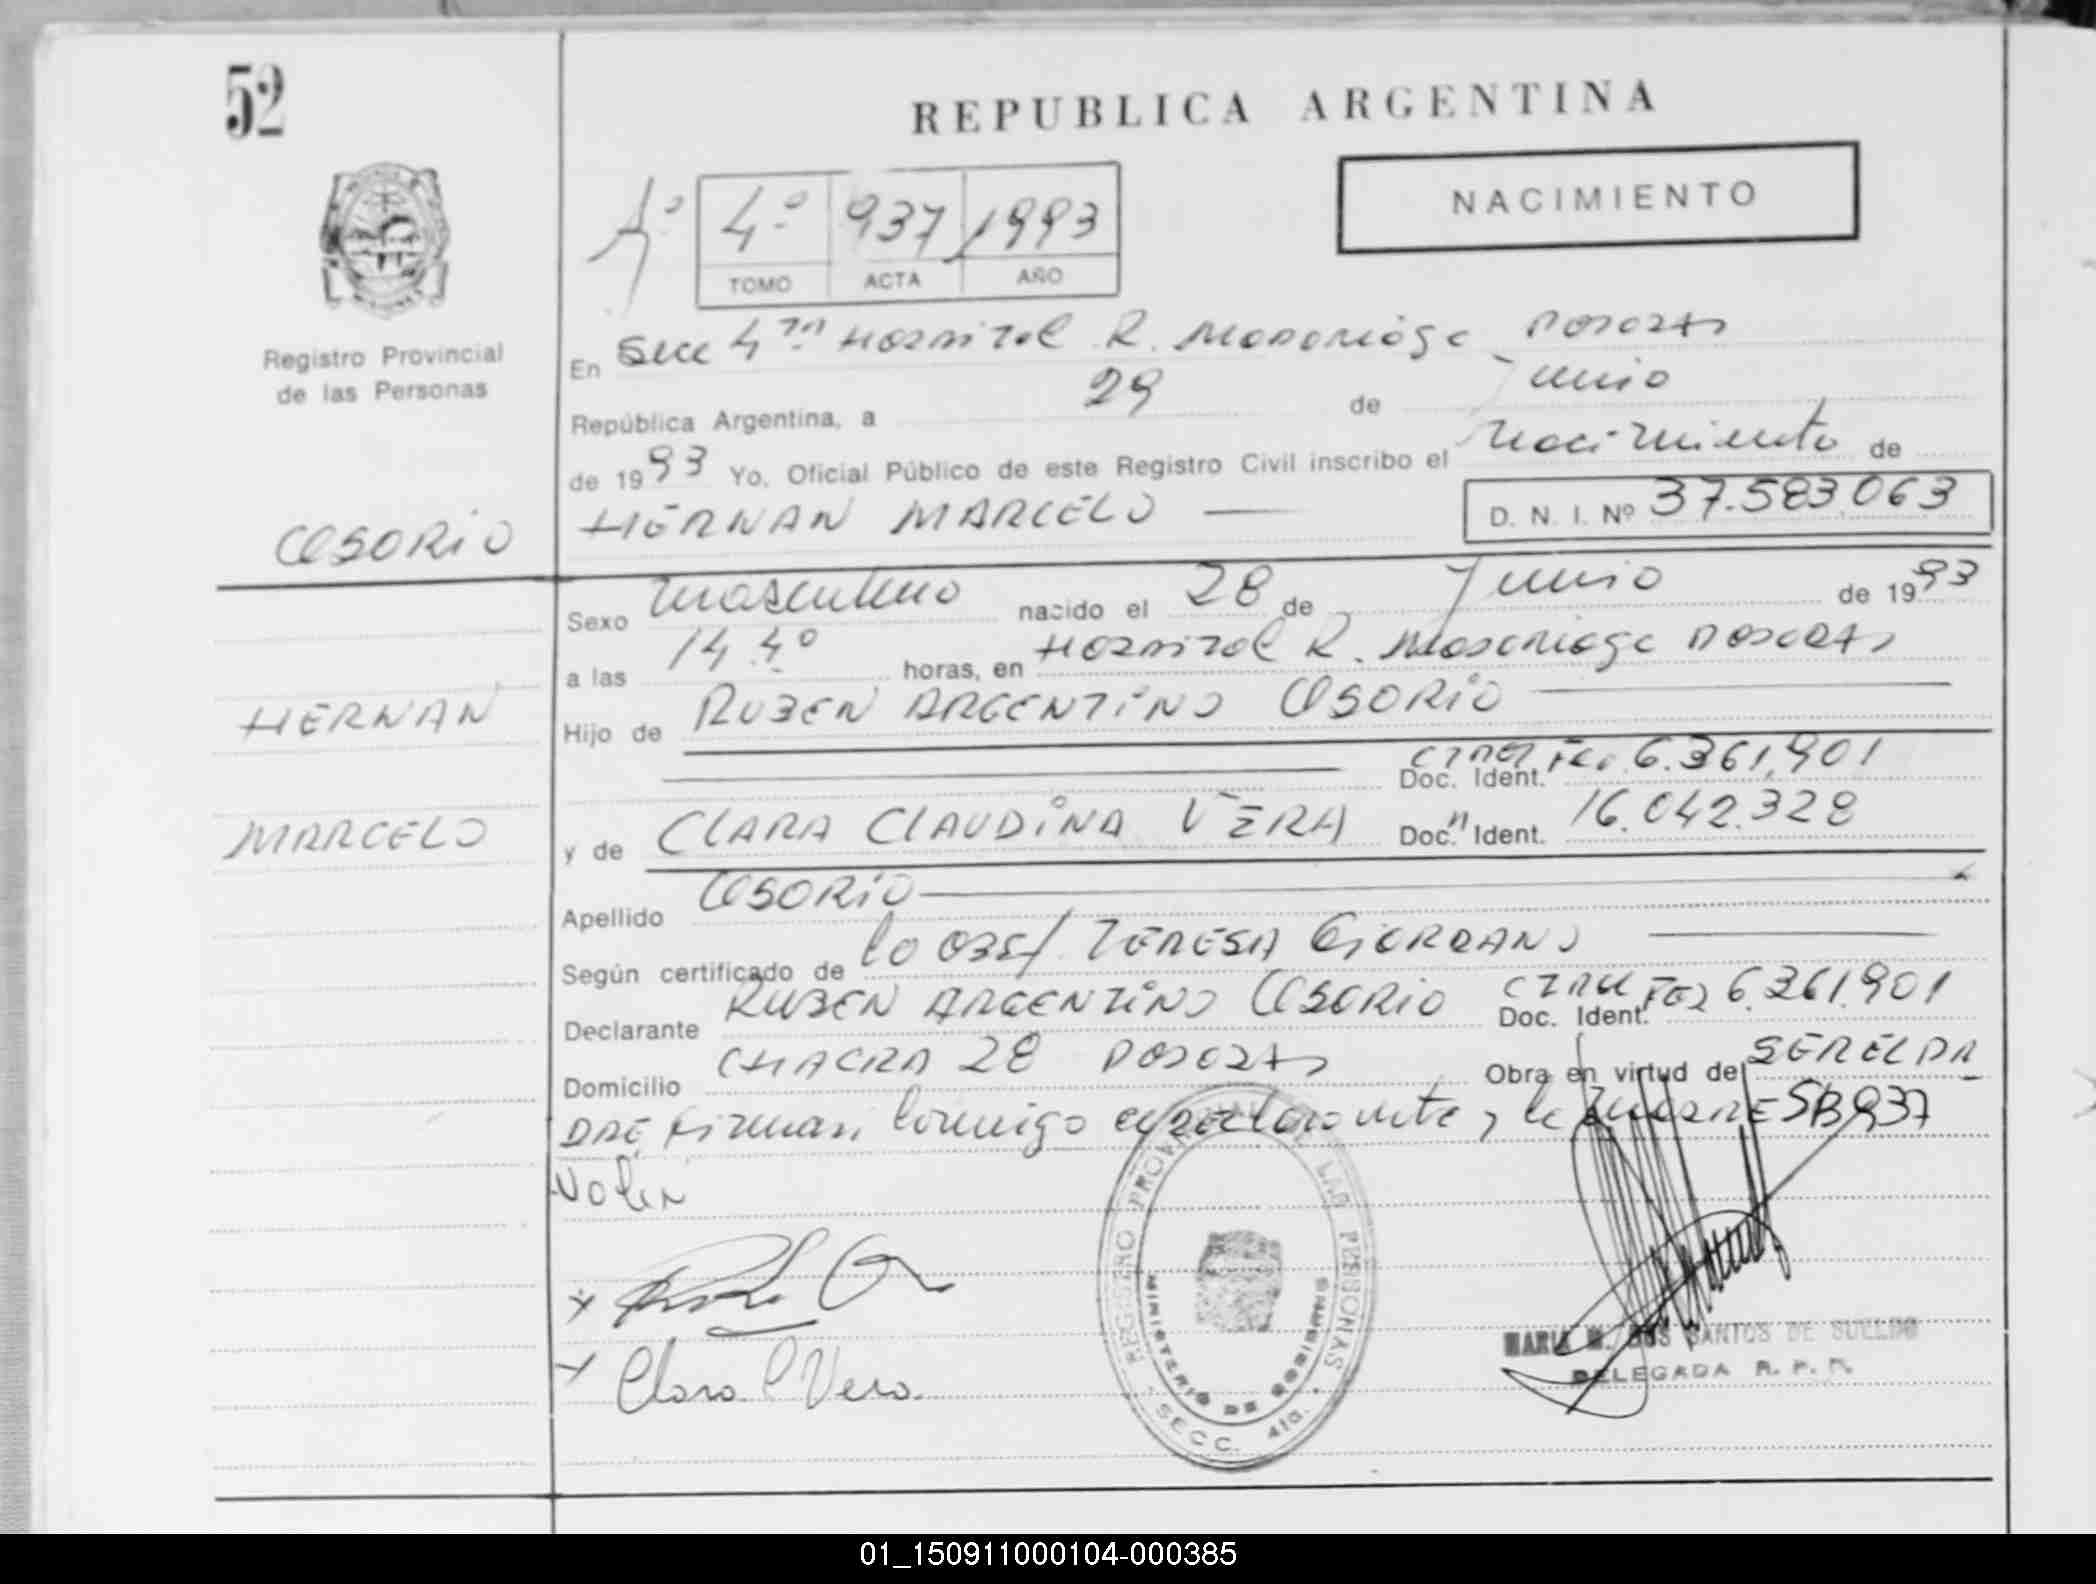 52
REPUBLICA ARGENTINA
NACIMIENTO
Aº 4º 937 1993
TOMO ACTA AÑO
Registro Provincial
de las Personas
En Secc 4ta Hospital R. Madariaga Posadas
República Argentina, a 29 de Junio
de 1993 Yo, Oficial Público de este Registro Civil inscribo el Nacimiento de
HERNAN MARCELO D. N. I. Nº 37.583.063
OSORIO
Sexo masculino nacido el 28 de Junio de 1993
a las 14.4º horas, en Hospital R. Madariaga Posadas
HERNAN
Hijo de RUBEN ARGENTINO OSORIO
Doc. Ident. 6.361.901
MARCELO
y de CLARA CLAUDINA VERA Doc. Ident. " 16.042.328
Apellido OSORIO
Según certificado de la Obst TERESA GIORDANO
Declarante RUBEN ARGENTINO OSORIO Doc. Ident. 6.361.901
Domicilio CHACRA 28 POSADAS Obra en virtud de SER EL PA
DRE Firman conmigo el declarante y la
SB 937
Clara C Vera
REGISTRO PROVINCIAL DE LAS PERSONAS
MINISTERIO DE GOBIERNO
SECC. 4ta.
MARIA M. DOS SANTOS DE SUELDO
DELEGADA R. P. P.
01_150911000104-000385